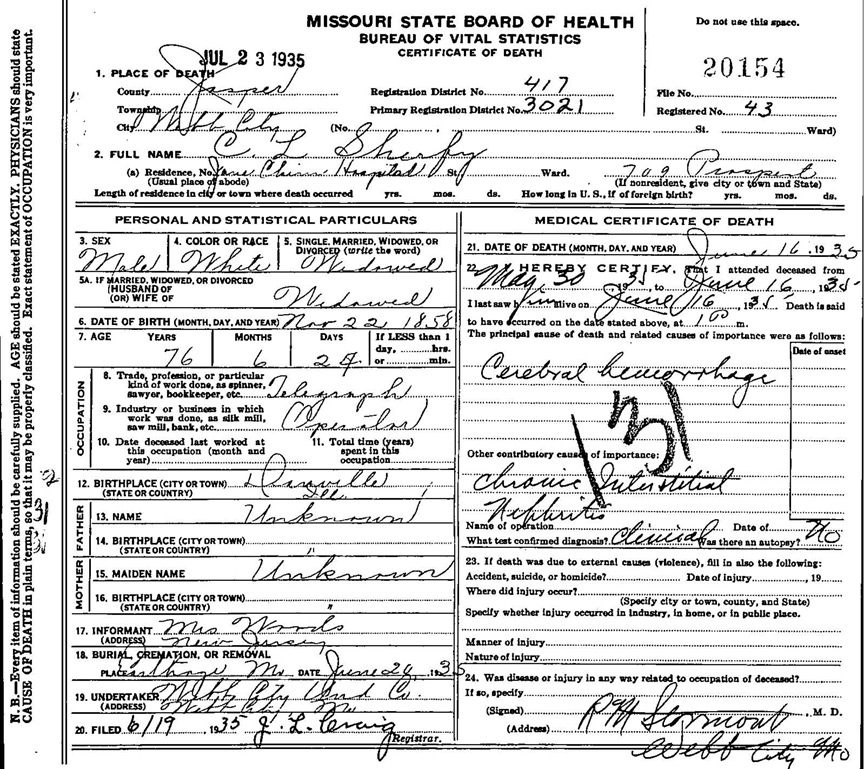 N.B.—Every item of information should be carefully supplied. AGE should be stated EXACTLY. PHYSICIANS should state
CAUSE OF DEATH in plain terms, so that it may be properly classified. Exact statement of OCCUPATION is very important.
MISSOURI STATE BOARD OF HEALTH
BUREAU OF VITAL STATISTICS
CERTIFICATE OF DEATH
Do not use this space.
JUL 23 1935
20154
1. PLACE OF DEATH
County Jasper Registration District No. 417 File No.
Township Primary Registration District No. 3021 Registered No. 43
City Webb City (No. St. Ward)
2. FULL NAME C. L. Sherby
(a) Residence, No. Jane Chinn Hospital St. Ward. 709 Prospect
(Usual place of abode) (If nonresident, give city or town and State)
Length of residence in city or town where death occurred yrs. mos. ds. How long in U. S., if of foreign birth? yrs. mos. ds.
PERSONAL AND STATISTICAL PARTICULARS
3. SEX 4. COLOR OR RACE 5. SINGLE, MARRIED, WIDOWED, OR
DIVORCED (write the word)
Male White Widowed
5A. IF MARRIED, WIDOWED, OR DIVORCED
HUSBAND OF
(OR) WIFE OF Widowed
6. DATE OF BIRTH (MONTH, DAY, AND YEAR) Nov 22, 1858
7. AGE YEARS MONTHS DAYS If LESS than 1
day, hrs.
or min.
76 6
OCCUPATION
8. Trade, profession, or particular
kind of work done, as spinner,
sawyer, bookkeeper, etc. Telegraph
9. Industry or business in which
work was done, as silk mill,
saw mill, bank, etc. Operator
10. Date deceased last worked at
this occupation (month and
year)
11. Total time (years)
spent in this
occupation
12. BIRTHPLACE (CITY OR TOWN) Danville
(STATE OR COUNTRY) Ill.
FATHER
13. NAME Unknown
14. BIRTHPLACE (CITY OR TOWN)
(STATE OR COUNTRY) "
MOTHER
15. MAIDEN NAME Unknown
16. BIRTHPLACE (CITY OR TOWN)
(STATE OR COUNTRY) "
17. INFORMANT Mrs Woods
(ADDRESS) New Jersey
18. BURIAL, CREMATION, OR REMOVAL
PLACE Carthage Mo. DATE June 20, 1935
19. UNDERTAKER Webb City Und Co.
(ADDRESS) Webb City Mo
20. FILED 6/19 1935 J. L. Craig
Registrar.
MEDICAL CERTIFICATE OF DEATH
21. DATE OF DEATH (MONTH, DAY, AND YEAR) June 16, 1935
22. I HEREBY CERTIFY, That I attended deceased from
May 30, 1935 to June 16, 1935
I last saw him alive on June 16, 1935 Death is said
to have occurred on the date stated above, at 100 m.
The principal cause of death and related causes of importance were as follows:
Date of onset
Cerebral hemorrhage
131
Other contributory causes of importance:
Chronic Interstitial
Nephritis
Name of operation Date of
What test confirmed diagnosis? Clinical Was there an autopsy? No
23. If death was due to external causes (violence), fill in also the following:
Accident, suicide, or homicide? Date of injury , 19
Where did injury occur?
(Specify city or town, county, and State)
Specify whether injury occurred in industry, in home, or in public place.
Manner of injury
Nature of injury
24. Was disease or injury in any way related to occupation of deceased?
If so, specify
(Signed) R M Stormont, M. D.
(Address) Webb City Mo